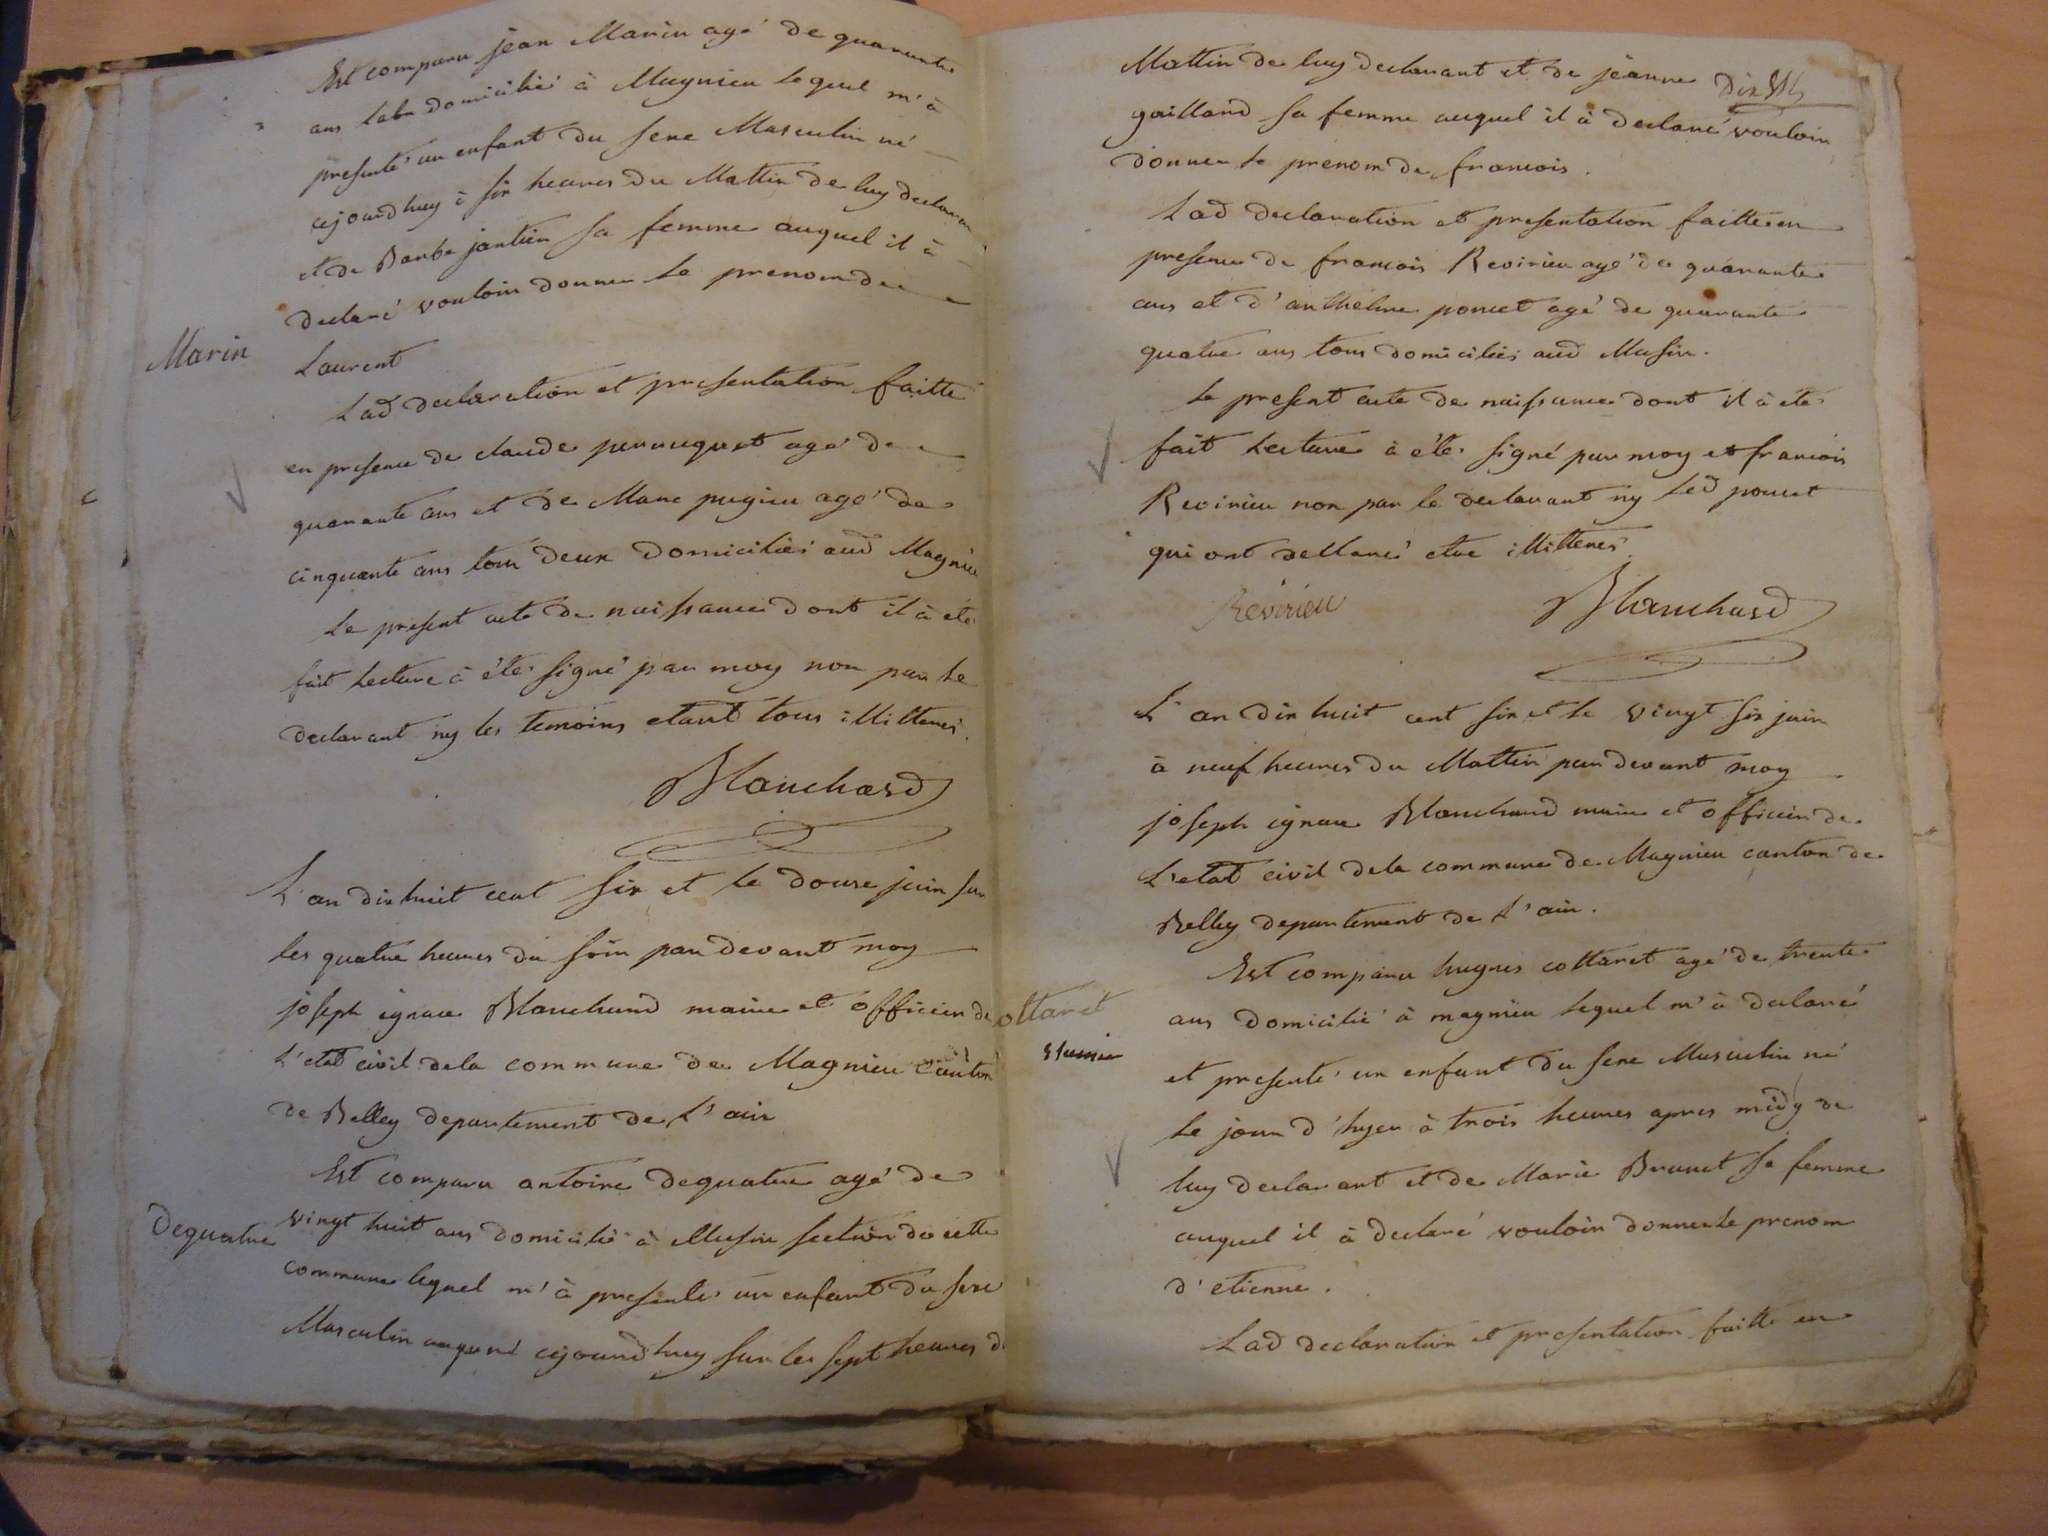 Est comparu jean Marin agé de quarante
ans labr domicilié à Magnieu lequel m'à
presenté un enfant du sexe Masculin né
cejourdhuy à six heures du Mattin de luy declarant
et de Barbe jantin sa femme auquel il à
declaré vouloir donner le prenom de
Marin
Laurent
Lad declaration et presentation faitte
en presence de claude perrauquet agé de
quarante ans et de Marc pugieu agé de
cinquante ans tous deux domiciliés aud Magnieu
Le present acte de naissance dont il à eté
fait Lecture à été signé par moy non par le
declarant ny les temoins etant tous illitterés.
Blanchard
L'an dix huit cent six et le douze juin sur
les quatre heures du soir par devant moy
joseph ignace Blanchard maire et officier de
L'etat civil dela commune de Magnieu canton
de Belley departement de L'ain
Est comparu antoine dequatre agé de
Dequatre
vingt huit ans domicilié à Musin section de cette
commune lequel m'à presenté un enfant du sexe
Masculin né cejourdhuy sur les sept heures d
Mattin de luy declarant et de jeanne
Dix
gaillard sa femme auquel il à declaré vouloir
donner le prenom de francois.
Lad declaration et presentation faitte en
presence de francois Revirieu agé de quarante
ans et d'anthelme poncet agé de quarante
quatre ans tous domiciliés aud Musin.
Le present acte de naissance dont il à eté
fait Lecture à été signé par moy et francois
Revirieu non par le declarant ny led poncet
qui ont dellaré etre illitterés
Revirieu Blanchard
L'an dix huit cent six et le vingt six juin
à neuf heures du Mattin par devant moy
joseph ignace Blanchard maire et officier de
L'etat civil dela commune de Magnieu canton de
Belley departement de L'ain.
Est comparu hugues cottaret agé de trente
ottaret
ans domicilié à magnieu lequel m'à declaré
et presenté un enfant du sexe Masculin né
le jour d'hyer à trois heures apres midy de
luy declarant et de Marie Brunet sa femme
auquel il à declaré vouloir donner le prenom
d'etienne.
Lad declaration et presentation faitte en